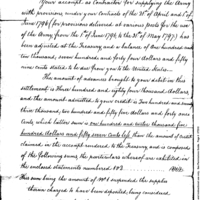 Your account, as Contractor for supplying the Army
with provisions, under your Contracts of the 3d of April and 1st of
June 1796 (for provisions delivered at various posts for the use
of the Army, from the 1st of June 1796, to the 31st of May 1797) has
been adjusted at the Treasury, and a balance of One hundred and
ten thousand, seven hundred and forty four dollars and fifty
nine cents stated to be due from you to the United States.
The amount of advances brought to your debit in this
settlement is three hundred and eighty four thousand dollars,
and the amount admitted to your credit is two hundred and seven
three thousand, two hundred and fifty five dollars and forty one
cents, which latter sum is one hundred and twelve thousand five
hundred dollars and fifty seven cents less than the amount of credit
claimed, in the accounts rendered to the Treasury, and is composed
of the following sums, the particulars whereof are exhibited in
the enclosed statements numbered
This sum being the amount of the supplies
charged to have been deposited, being considered